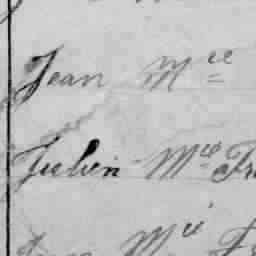 Jean Mce
Julien Mce Fr
Mce Fr